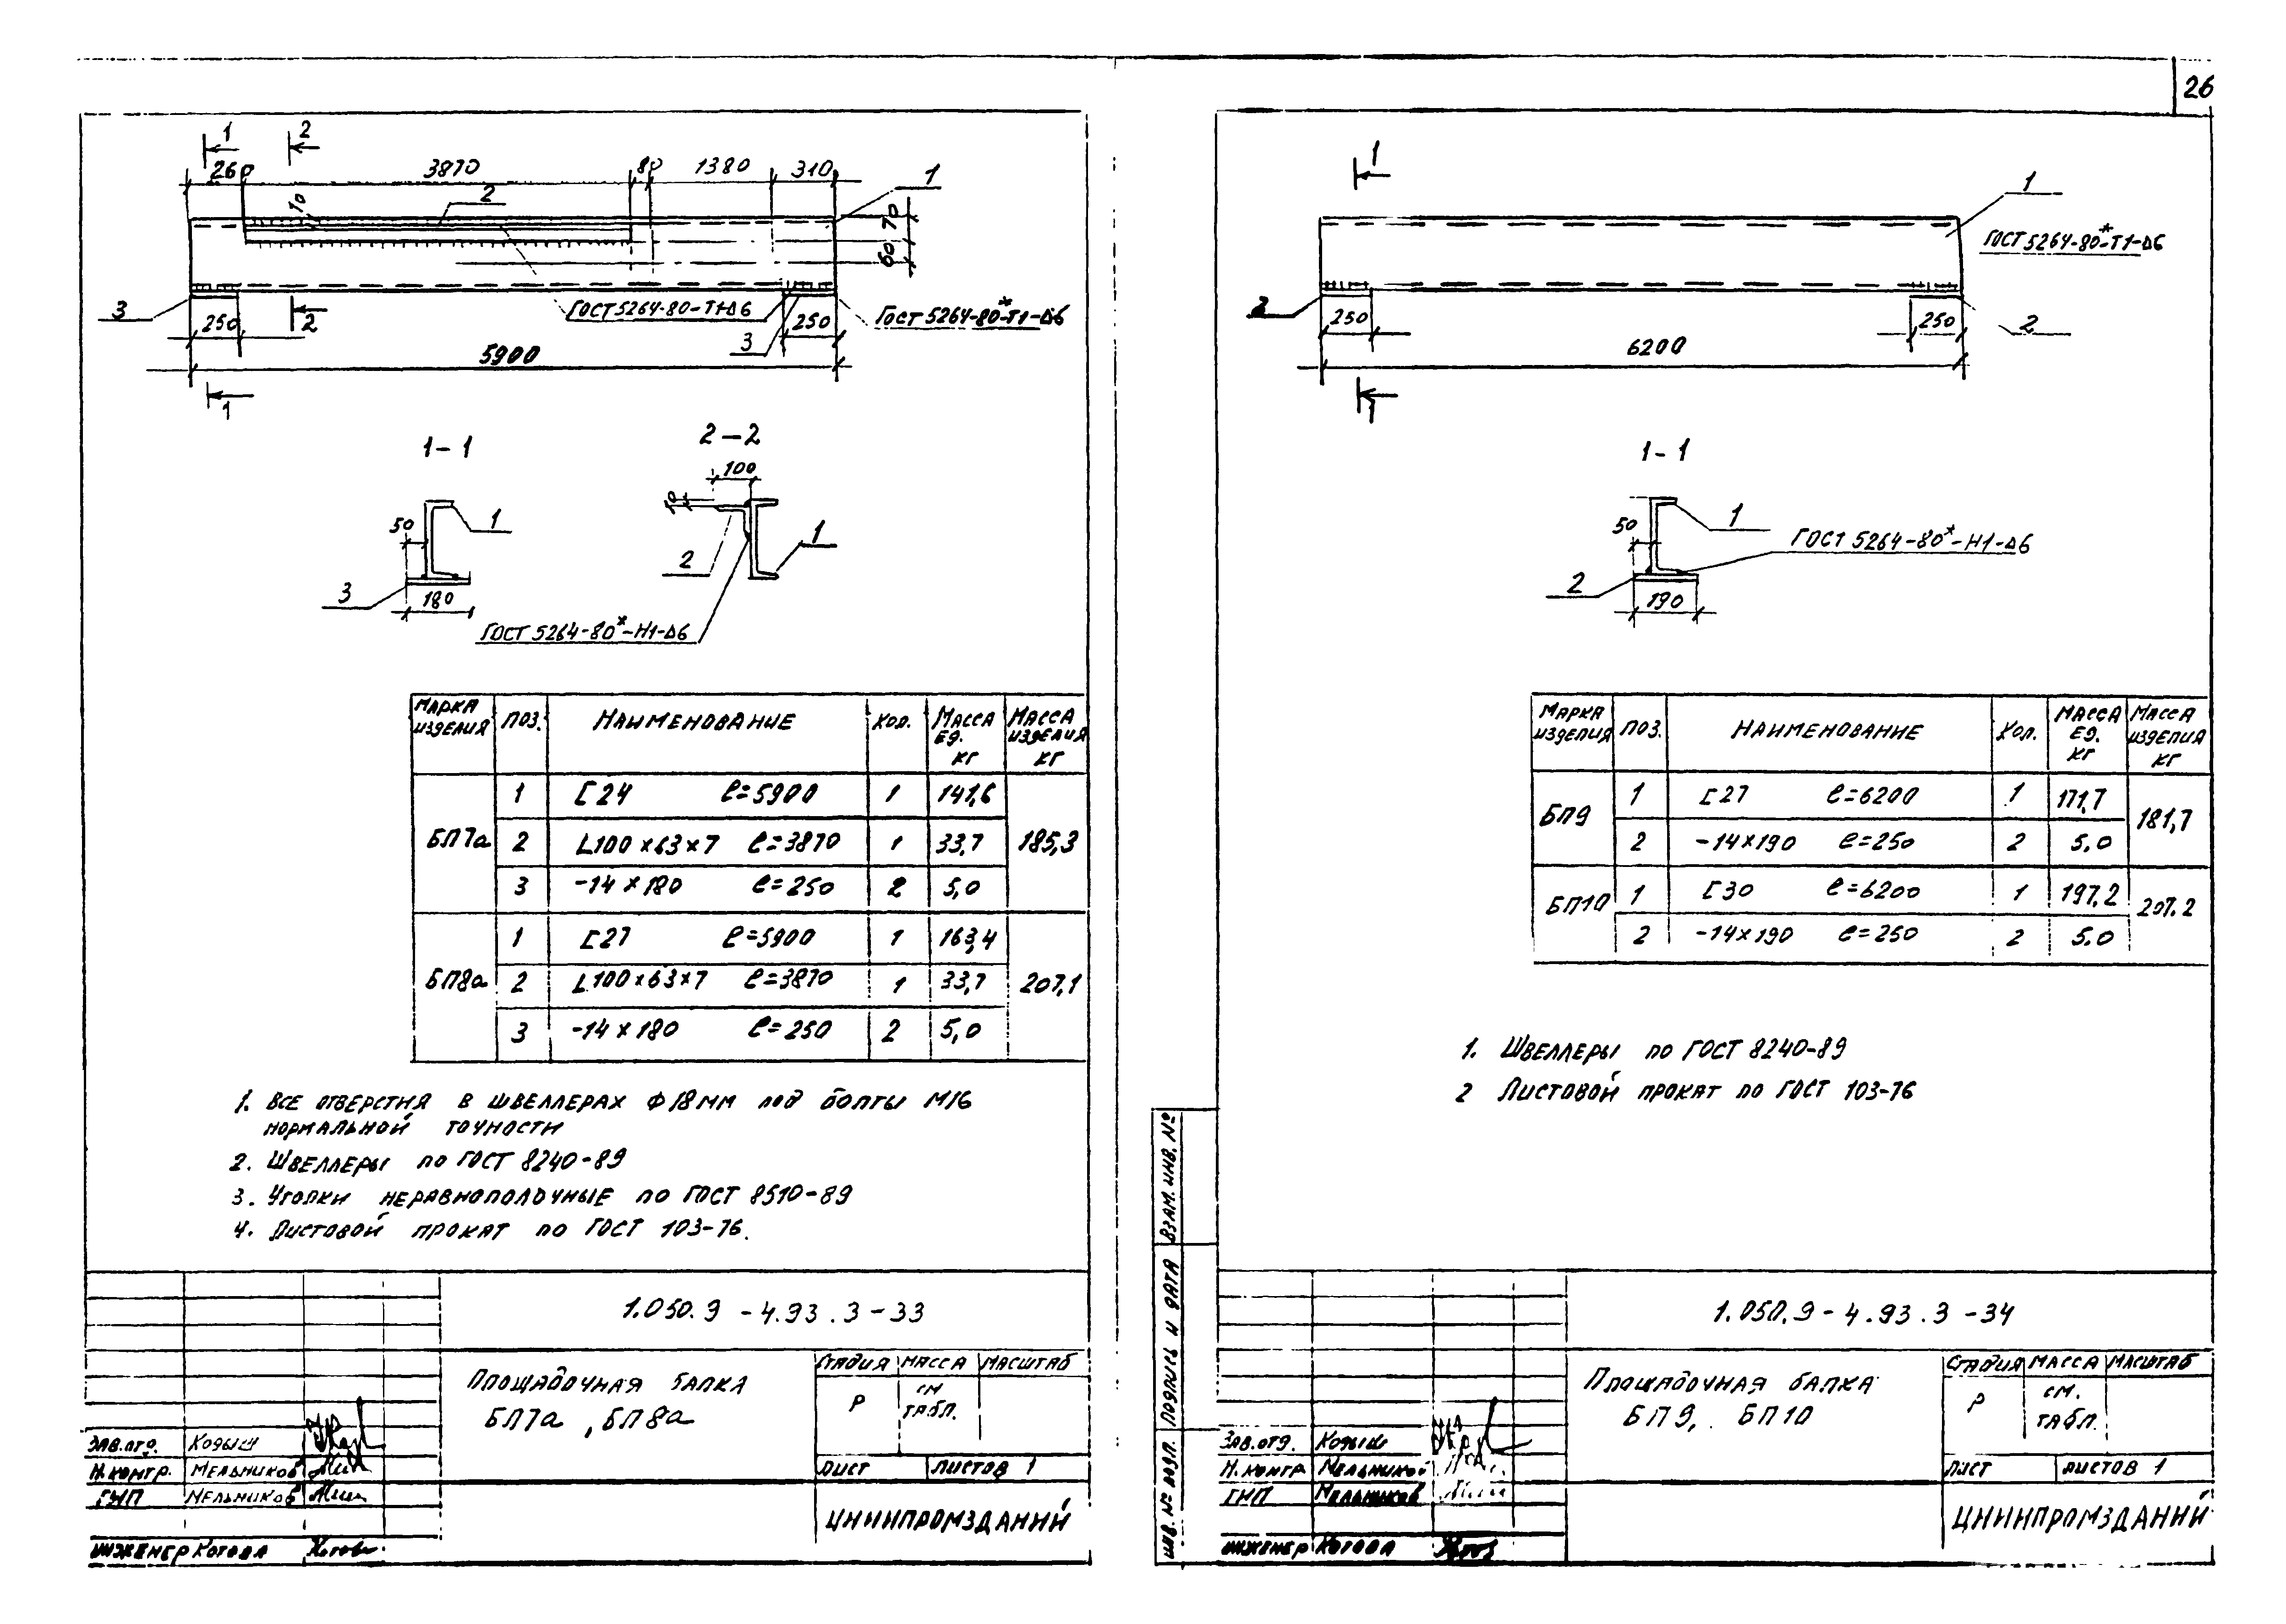 26
1 2
260 3870 80 1380 310
10 2 1
70
60
3
250 2
ГОСТ 5264-80-Т1-Δ6
250
ГОСТ 5264-80*-Т1-Δ6
3
5900
1
1-1
50 1
3
180
2-2
100
10
2 1
ГОСТ 5264-80*-Н1-Δ6
Марка изделия Поз. Наименование Кол. Масса ед. кг Масса изделия кг
БП7а 1 [24 ℓ=5900 1 141,6 185,3
2 L100×63×7 ℓ=3870 1 33,7
3 -14×180 ℓ=250 2 5,0
БП8а 1 [27 ℓ=5900 1 163,4 207,1
2 L100×63×7 ℓ=3870 1 33,7
3 -14×180 ℓ=250 2 5,0
1. Все отверстия в швеллерах Ф18мм под болты М16
нормальной точности
2. Швеллеры по ГОСТ 8240-89
3. Уголки неравнополочные по ГОСТ 8510-89
4. Листовой прокат по ГОСТ 103-76.
1.050.9-4.93.3-33
Площадочная балка
БП7а, БП8а
Стадия Масса Масштаб
Р см. табл.
Лист Листов 1
ЦНИИПРОМЗДАНИЙ
Зав.отд. Кодыш
Н.контр. Мельников
ГИП Мельников
Инженер Котова
1
1
ГОСТ 5264-80*-Т1-Δ6
2
250 250
2
6200
1
1-1
50 1
ГОСТ 5264-80*-Н1-Δ6
2
190
Марка изделия Поз. Наименование Кол. Масса ед. кг Масса изделия кг
БП9 1 [27 ℓ=6200 1 171,7 181,7
2 -14×190 ℓ=250 2 5,0
БП10 1 [30 ℓ=6200 1 197.2 207.2
2 -14×190 ℓ=250 2 5.0
1. Швеллеры по ГОСТ 8240-89
2 Листовой прокат по ГОСТ 103-76
Взам. инв. №
Подпись и дата
Инв. № подл.
1.050.9-4.93.3-34
Площадочная балка
БП9, БП10
Стадия Масса Масштаб
Р см. табл.
Лист Листов 1
ЦНИИПРОМЗДАНИЙ
Зав.отд. Кодыш
Н.контр Мельников
ГИП Мельников
Инженер Котова